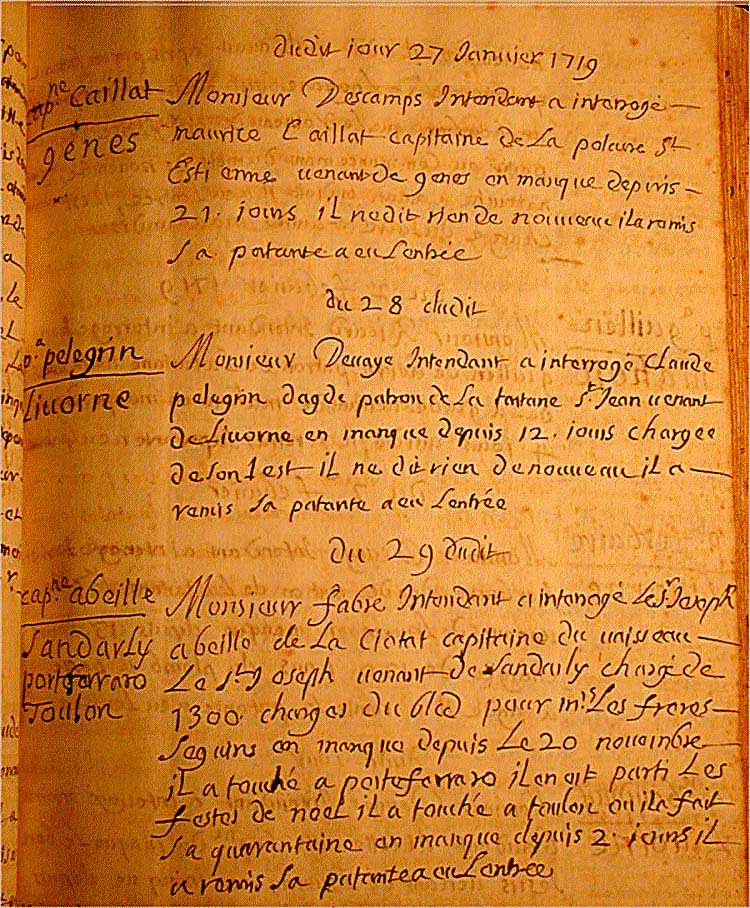 dudit jour 27 Janvier 1719
cap.ne Caillat
genes
Monsieur Descamps Intendant a interrogé
maurice Caillat capitaine de La polacre St
Estienne venant de genes en manque depuis
21. jours il ne dit rien de nouveau il a remis
Sa patante a eu Lentrée
du 28 dudit
p.a pelegrin
Livorne
Monsieur Devaye Intendant a interrogé Claude
pelegrin dagde patron de La tartane St Jean venant
de Livorne en manque depuis 12. jours chargee
de son lest il ne dit rien de nouveau il a
remis Sa patante a eu Lentrée
du 29 dudit
cap.ne abeille
Sandarly
portferraro
Toulon
Monsieur fabre Intendant a interrogé Le Sr Joseph
abeille de La Ciotat capitaine du vaisseau
Le St Joseph venant de Sandarly chargé de
1300. charges du bled pour mrs Les freres
Seguins en manque depuis Le 20 novembre
il a touché a portoferraro il en oit parti Les
festes de nöel il a touché a toulon ou il a fait
Sa quarantaine en manque depuis 2. jours il
a remis Sa patante a eu Lentrée